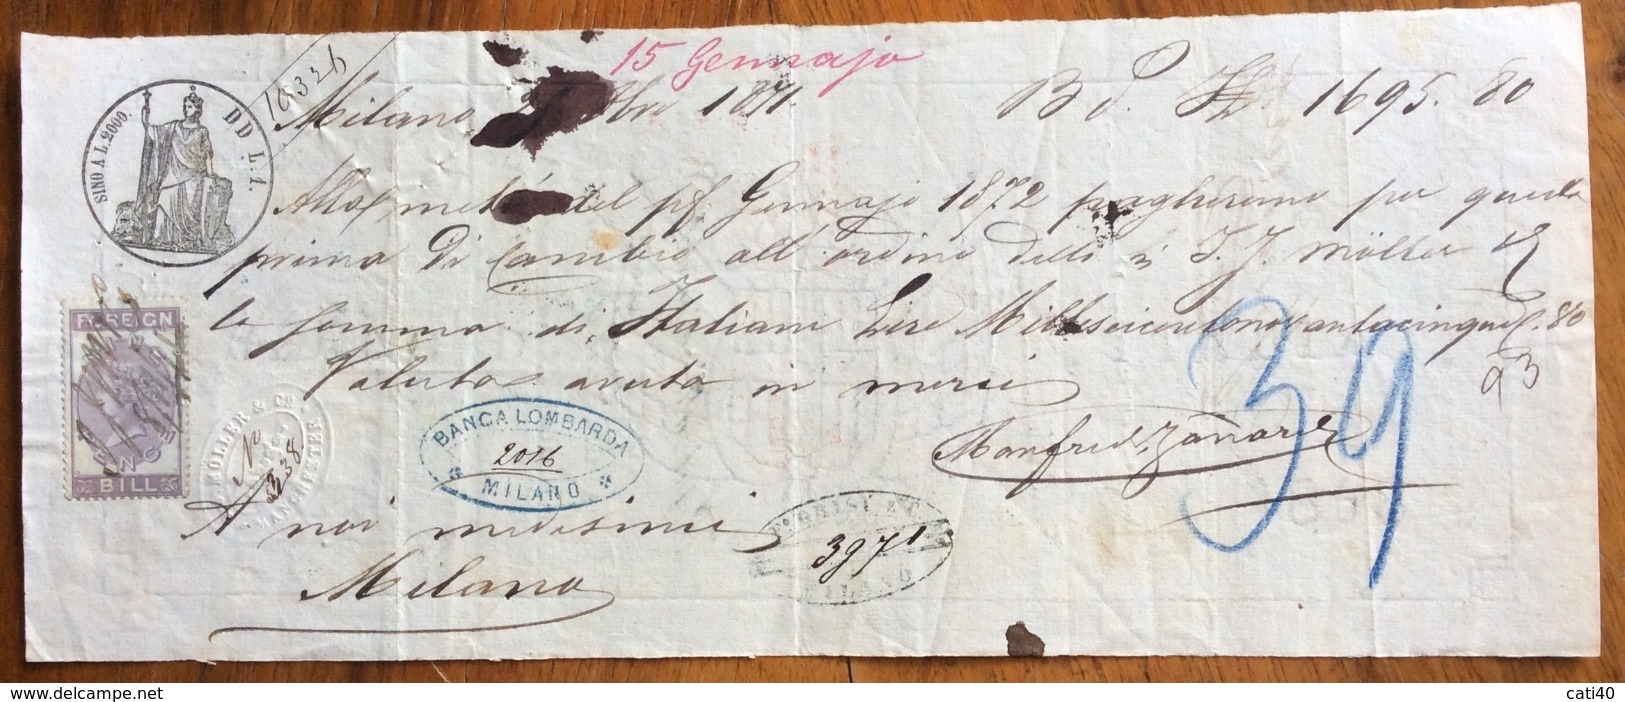 15 Gennajo
10326
Milano, 1871. B P. 1695.80
SINO A L. 2000. DD L. 1.
Alla metà del pf Gennajo 1872 pagheremo per questa
prima di Cambio all'ordine delli SS J. J. Möller & C
la somma di Italiane Lire Milleseicentonovantacinque C. 80
93
Valuta avuta in merci
39
FOREIGN
BILL
MÖLLER & Co
MANCHESTER
No
338
BANCA LOMBARDA
2016
MILANO
Manfredi, Zañar
A noi medesimi
3971
MILANO
Milano
cati40